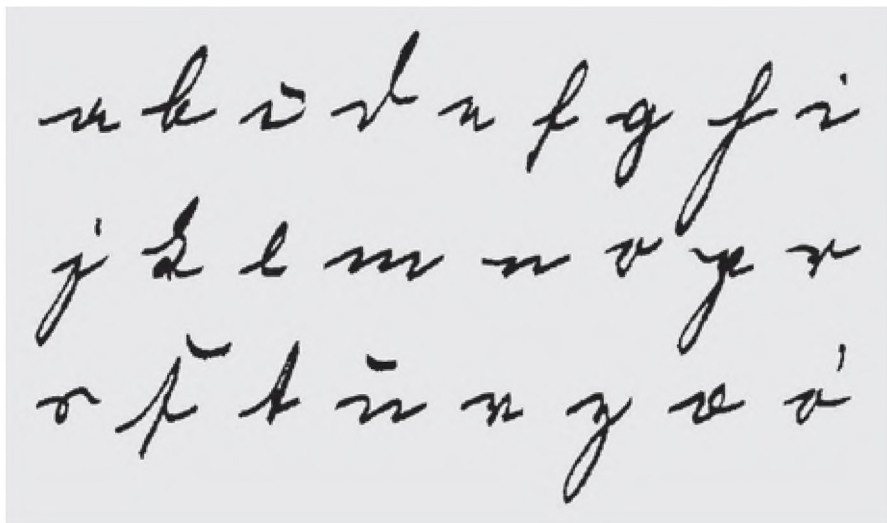 a b c d e f g h i
j k l m n o p r
s ſ t u v y æ ø